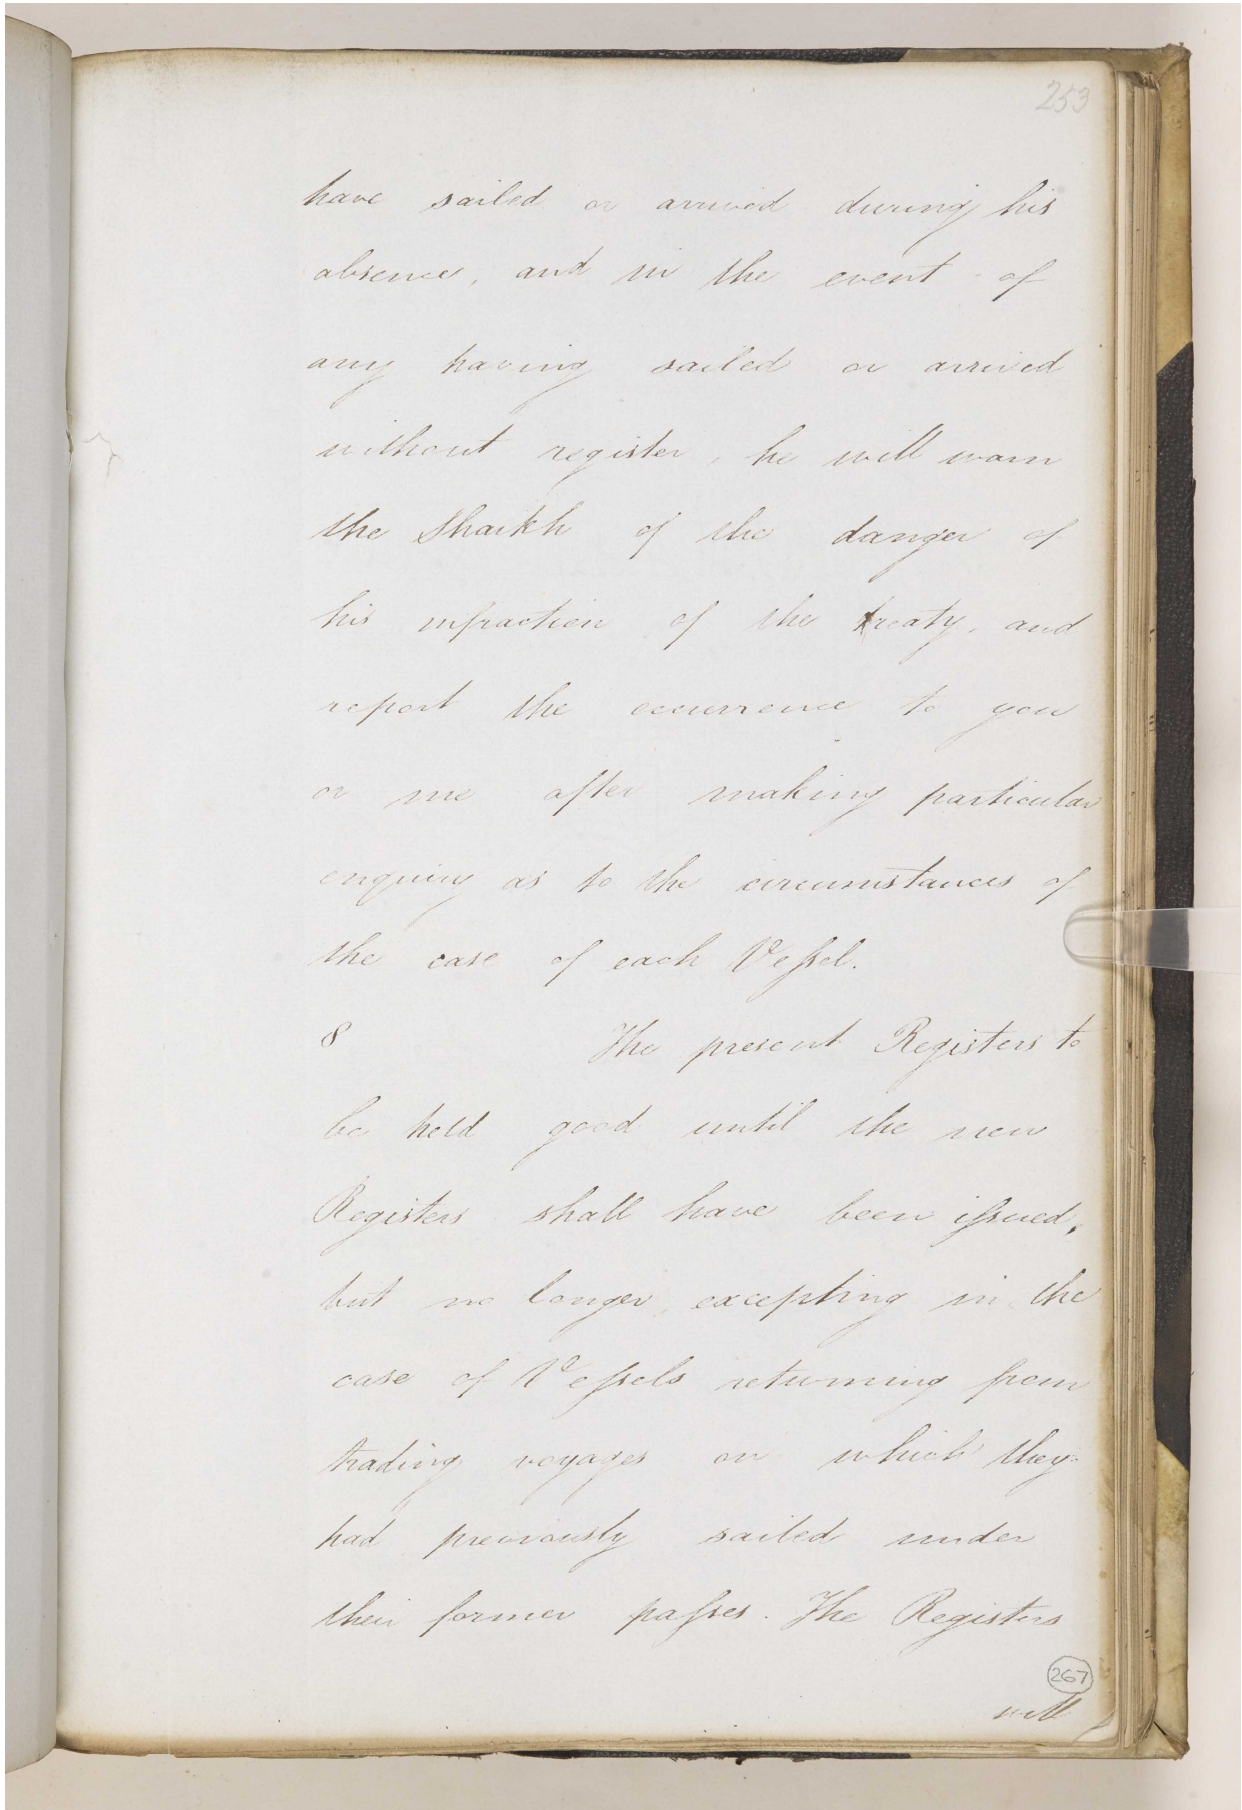 253
have sailed or arrived during his
absence, and in the event of
any having sailed or arrived
without register, he will warn
the Shaikh of the danger of
his infraction of the treaty, and
report the occurrence to you
or me after making particular
enquiry as to the circumstances of
the case of each Vessel.
8 The present Registers to
be held good until the new
Registers shall have been issued,
but no longer excepting in the
case of Vessels returning from
trading voyages on which they
had previously sailed under
their former passes. The Registers
267
will